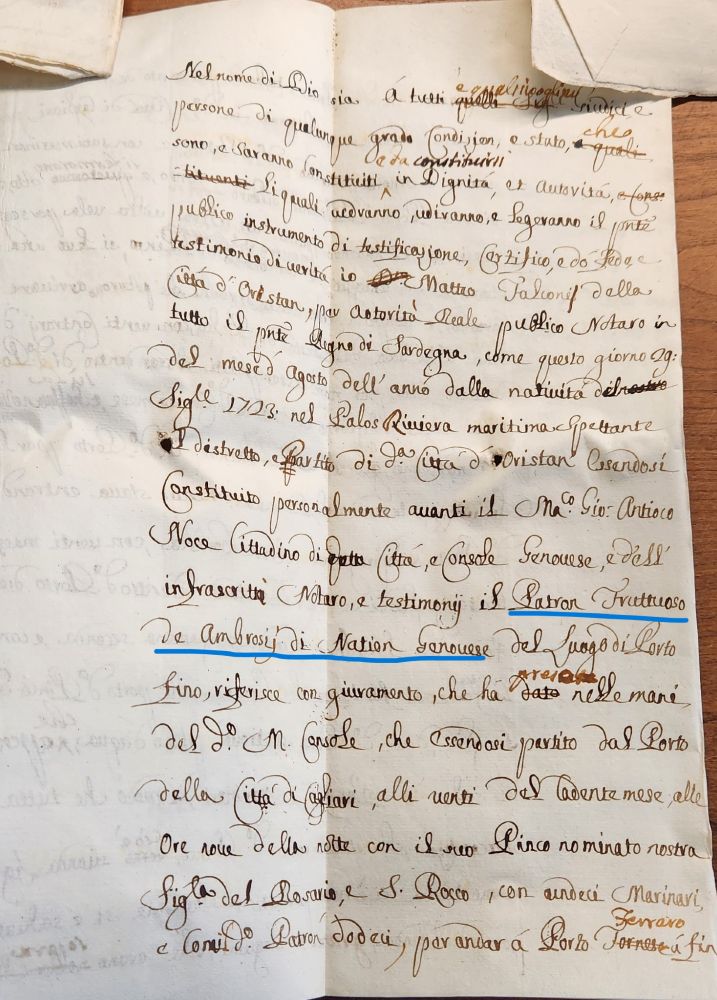 Nel nome di Dio sia A tutti quelli Sig.ri Giudici e
persone di qualunque grado Condizion, e stato, e quali che
sono, e saranno Constituiti e da constituirsi in Dignitá, et autoritá, e Cons=
=tituenti Li quali vedranno, udiranno, e legeranno il pnte
publico instrumento di testificazione, Certifico, e dó fede, e
testimonio di veritá io Matteo Falconis della
Cittá d'Oristan, per autoritá Reale publico Notaro in
tutto il pnte Regno di Sardegna, come questo giorno 29:
del mese d'Agosto dell'anno dalla nativitá del nostro
Sig.re 1723: nel Palos Riviera maritima spettante
al distretto, e partito di d.a Cittá d'Oristan essendosi
Constituito personalmente avanti il Ma.co Gio: Antioco
Noce Cittadino di detta Cittá, e Console Genovese, e dell'
infrascritti Notaro, e testimonij il Patron Fruttuoso
de Ambrosij di Nation Genovese del Luogo di Porto
fino, riferisce con giuramento, che há dato nelle mani
del d.o M. Console, che essendosi partito dal Porto
della Cittá di Cagliari, alli venti del Cadente mese, alle
Ore nove della notte con il suo Pinco nominato nostra
Sig.ra del Rosario, e S. Rocco, con undeci Marinari,
e Com il d.o Patron dodeci, per andar á Porto Ferraro Tornese á fin